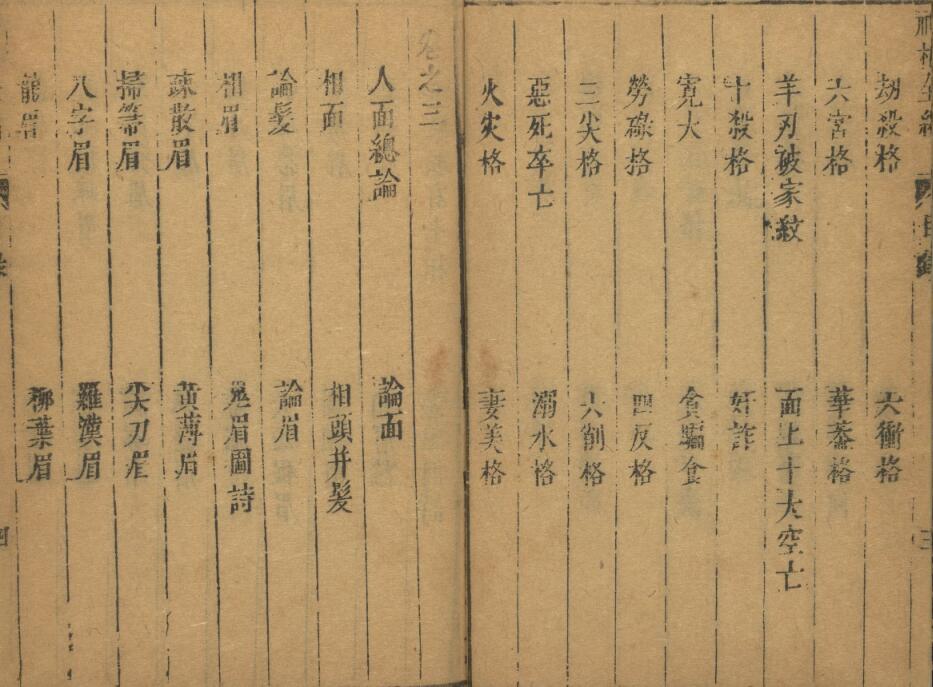 劫殺格 六衝格
六害格 華蓋格
羊刃破家紋 面上十大空亡
十殺格 奸詐
寛大 貪
勞碌格 四反格
三尖格 六削格
惡死卒亡 溺水格
火災格 妻美格
卷之三
人面總論 論面
相面 相頭并髪
論髪 論眉
相眉 眉圖詩
疎散眉 黄薄眉
掃箒眉 尖刀眉
八字眉 羅漢眉
龍眉 柳葉眉
目錄
三
四